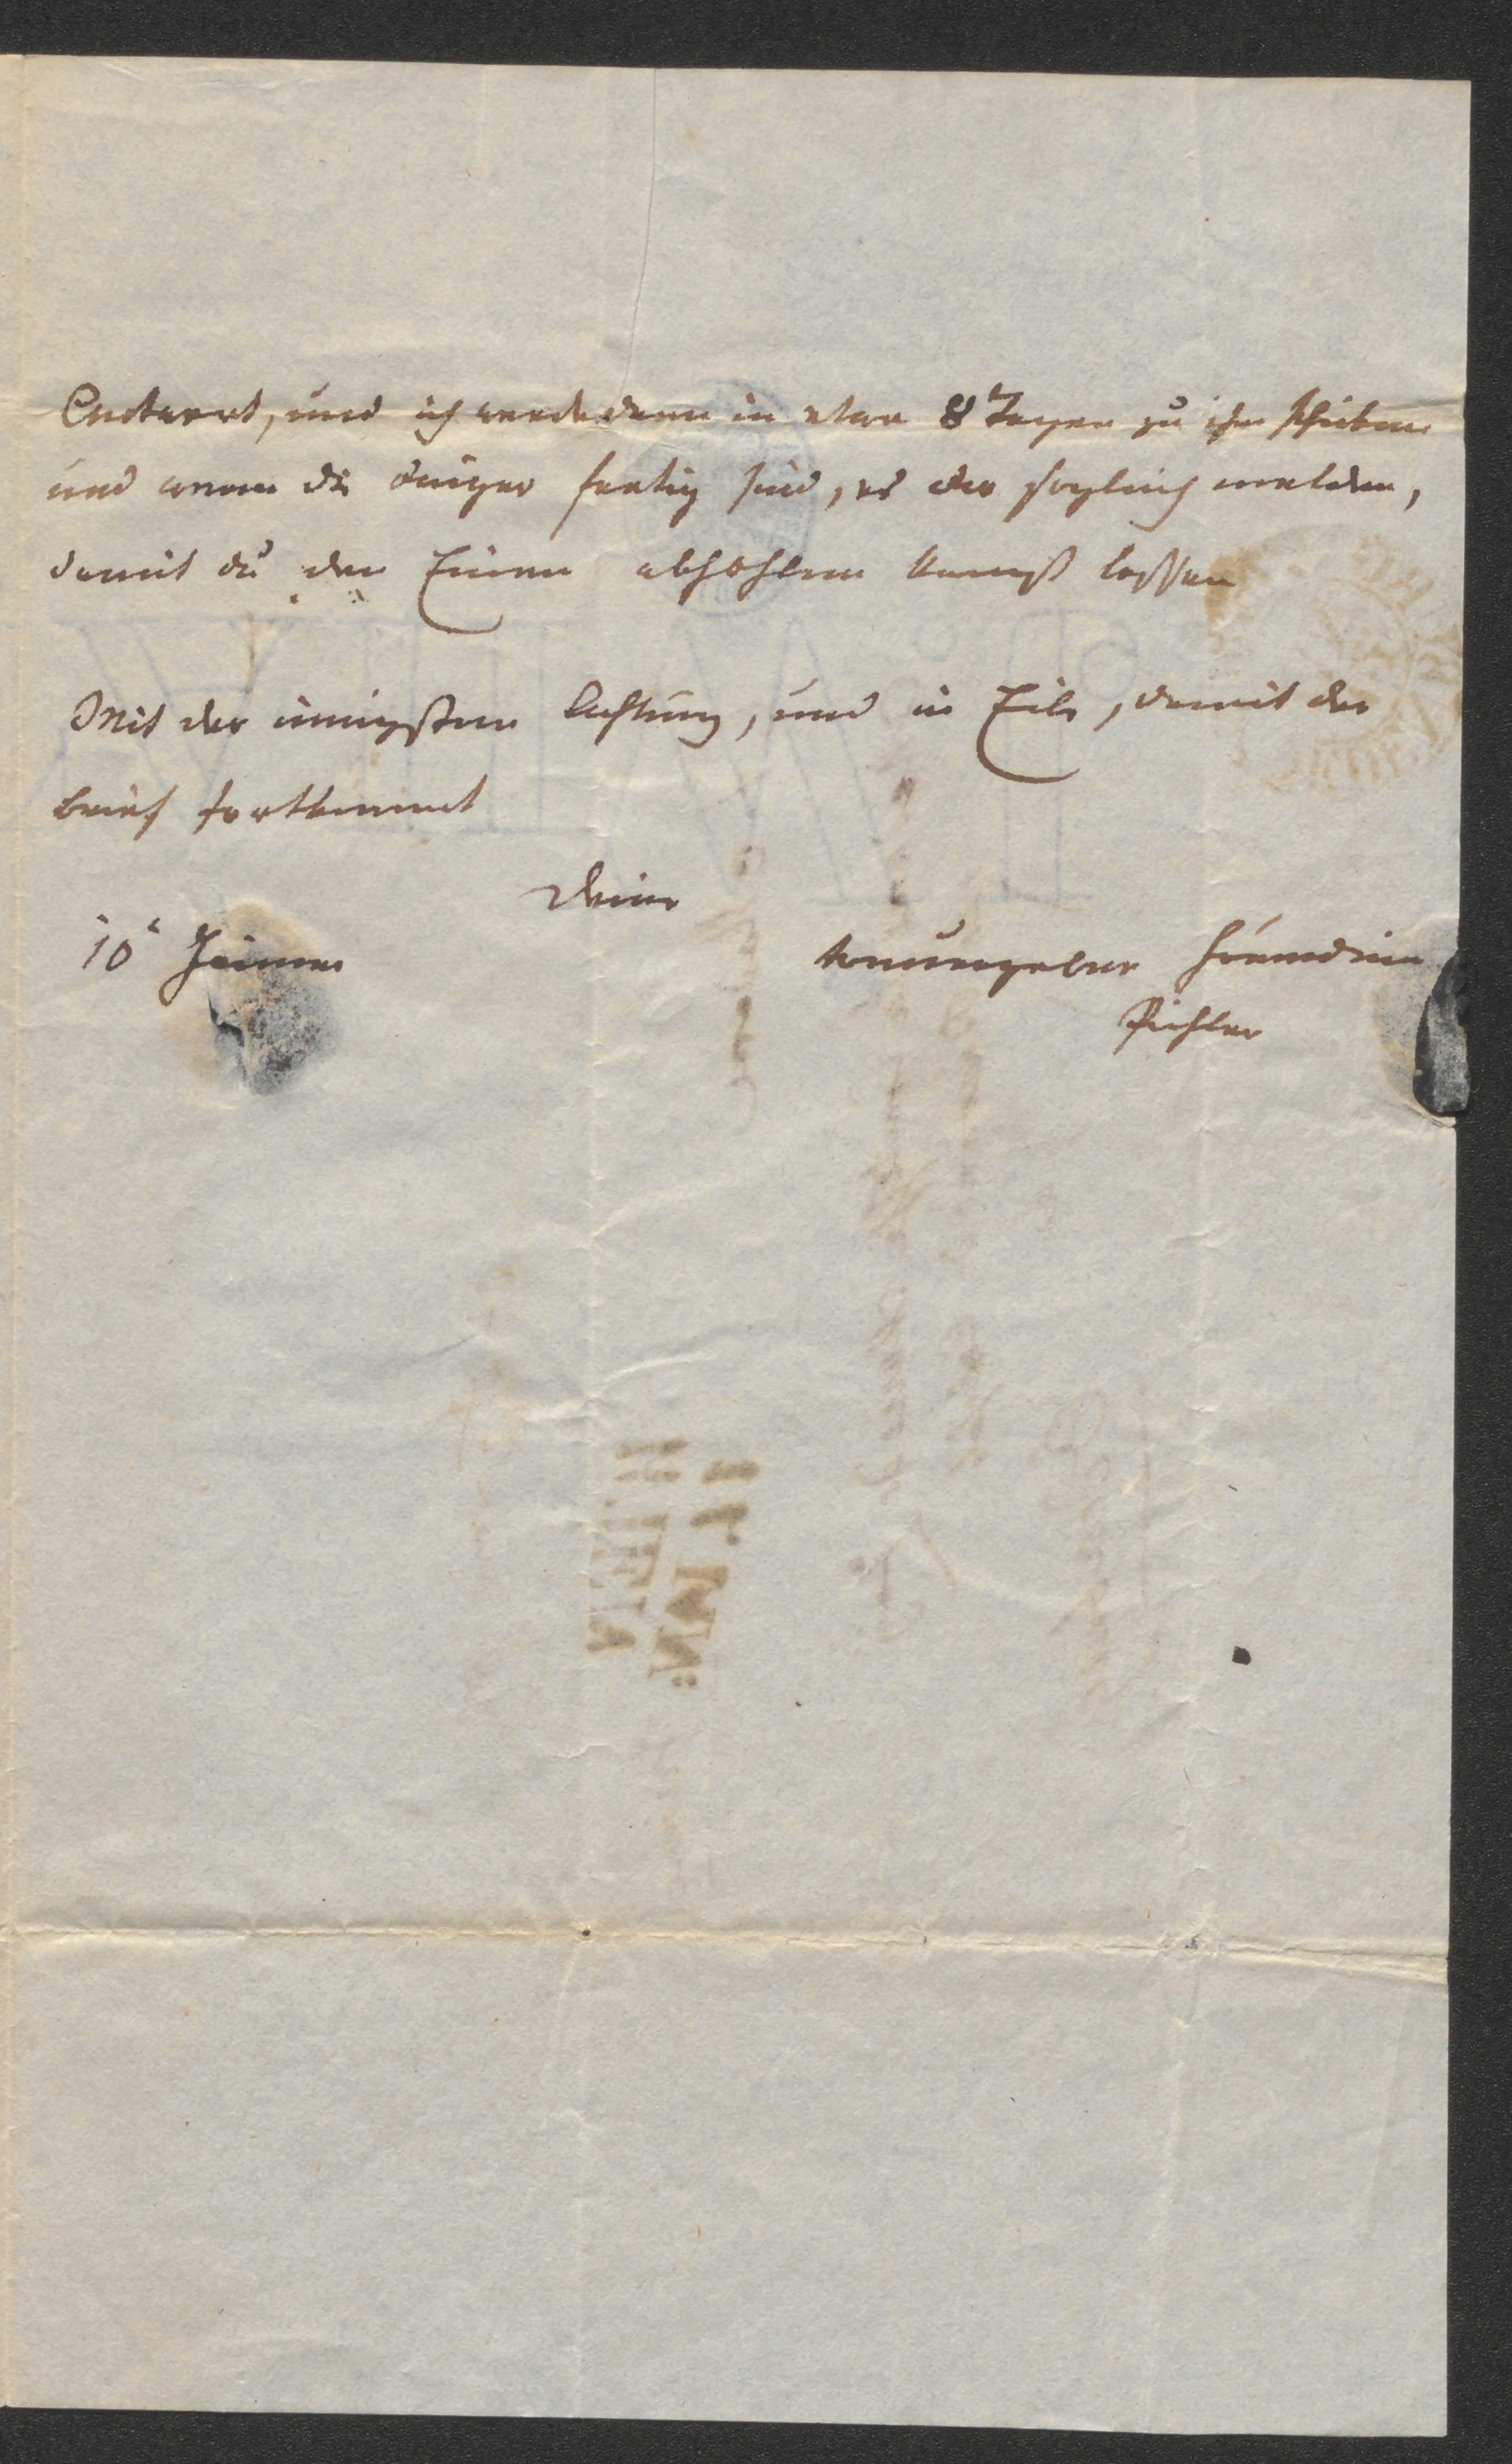 Antwort, und ich werde dann in etwa 8 Tagen zu ihm schicken
und wenn die Ringe fertig sind, es dir sogleich melden,
damit du den Einen abhohlen kannst lassen
Mit der innigsten Achtung, und in Eile, damit der
Brief fortkommt
Deine
10t Jänner
treuergebne Freundinn
Pichler